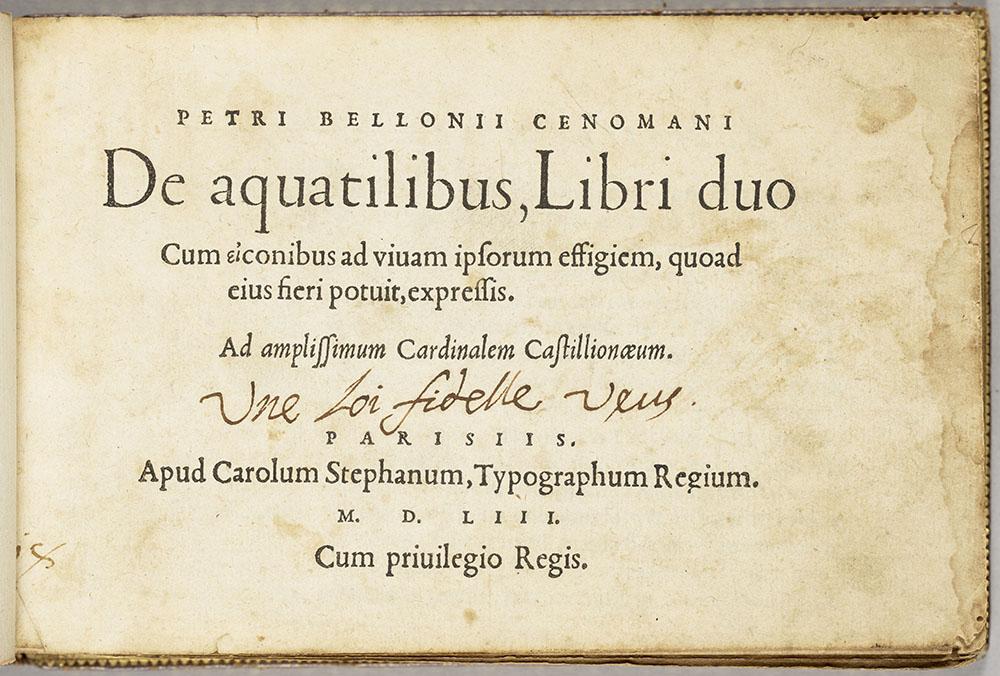 PETRI BELLONII CENOMANI
De aquatilibus, Libri duo
Cum εἰconibus ad viuam ipſorum effigiem, quoad
eius fieri potuit, expreſſis.
Ad ampliſſimum Cardinalem Caſtillionæum.
Une Loi fidelle Veus.
PARISIIS.
Apud Carolum Stephanum, Typographum Regium.
M. D. LIII.
Cum priuilegio Regis.